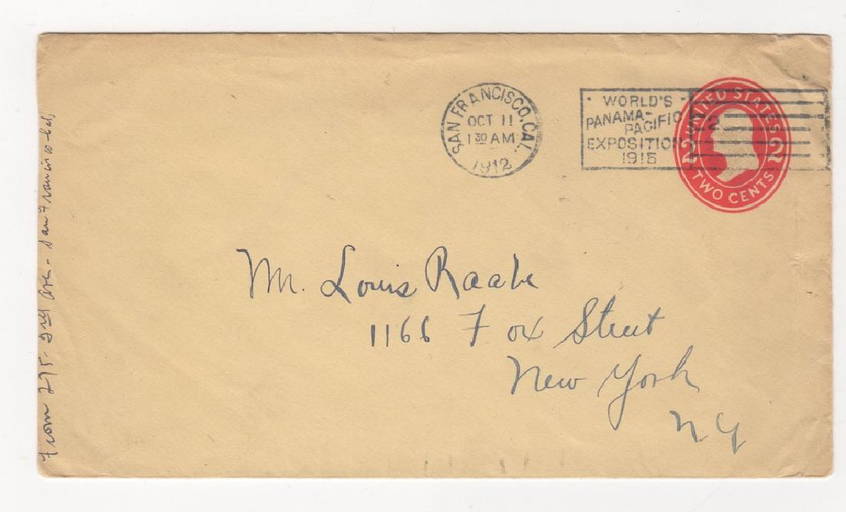 SAN FRANCISCO, CAL.
OCT 11
1 30 AM
1912
WORLD'S
PANAMA-
PACIFIC
EXPOSITION
1915
UNITED STATES
2 2
TWO CENTS
Mr. Louis Raabe
1166 Fox Street
New York
N Y
From 275- 3rd Ave - San Francisco Cal,